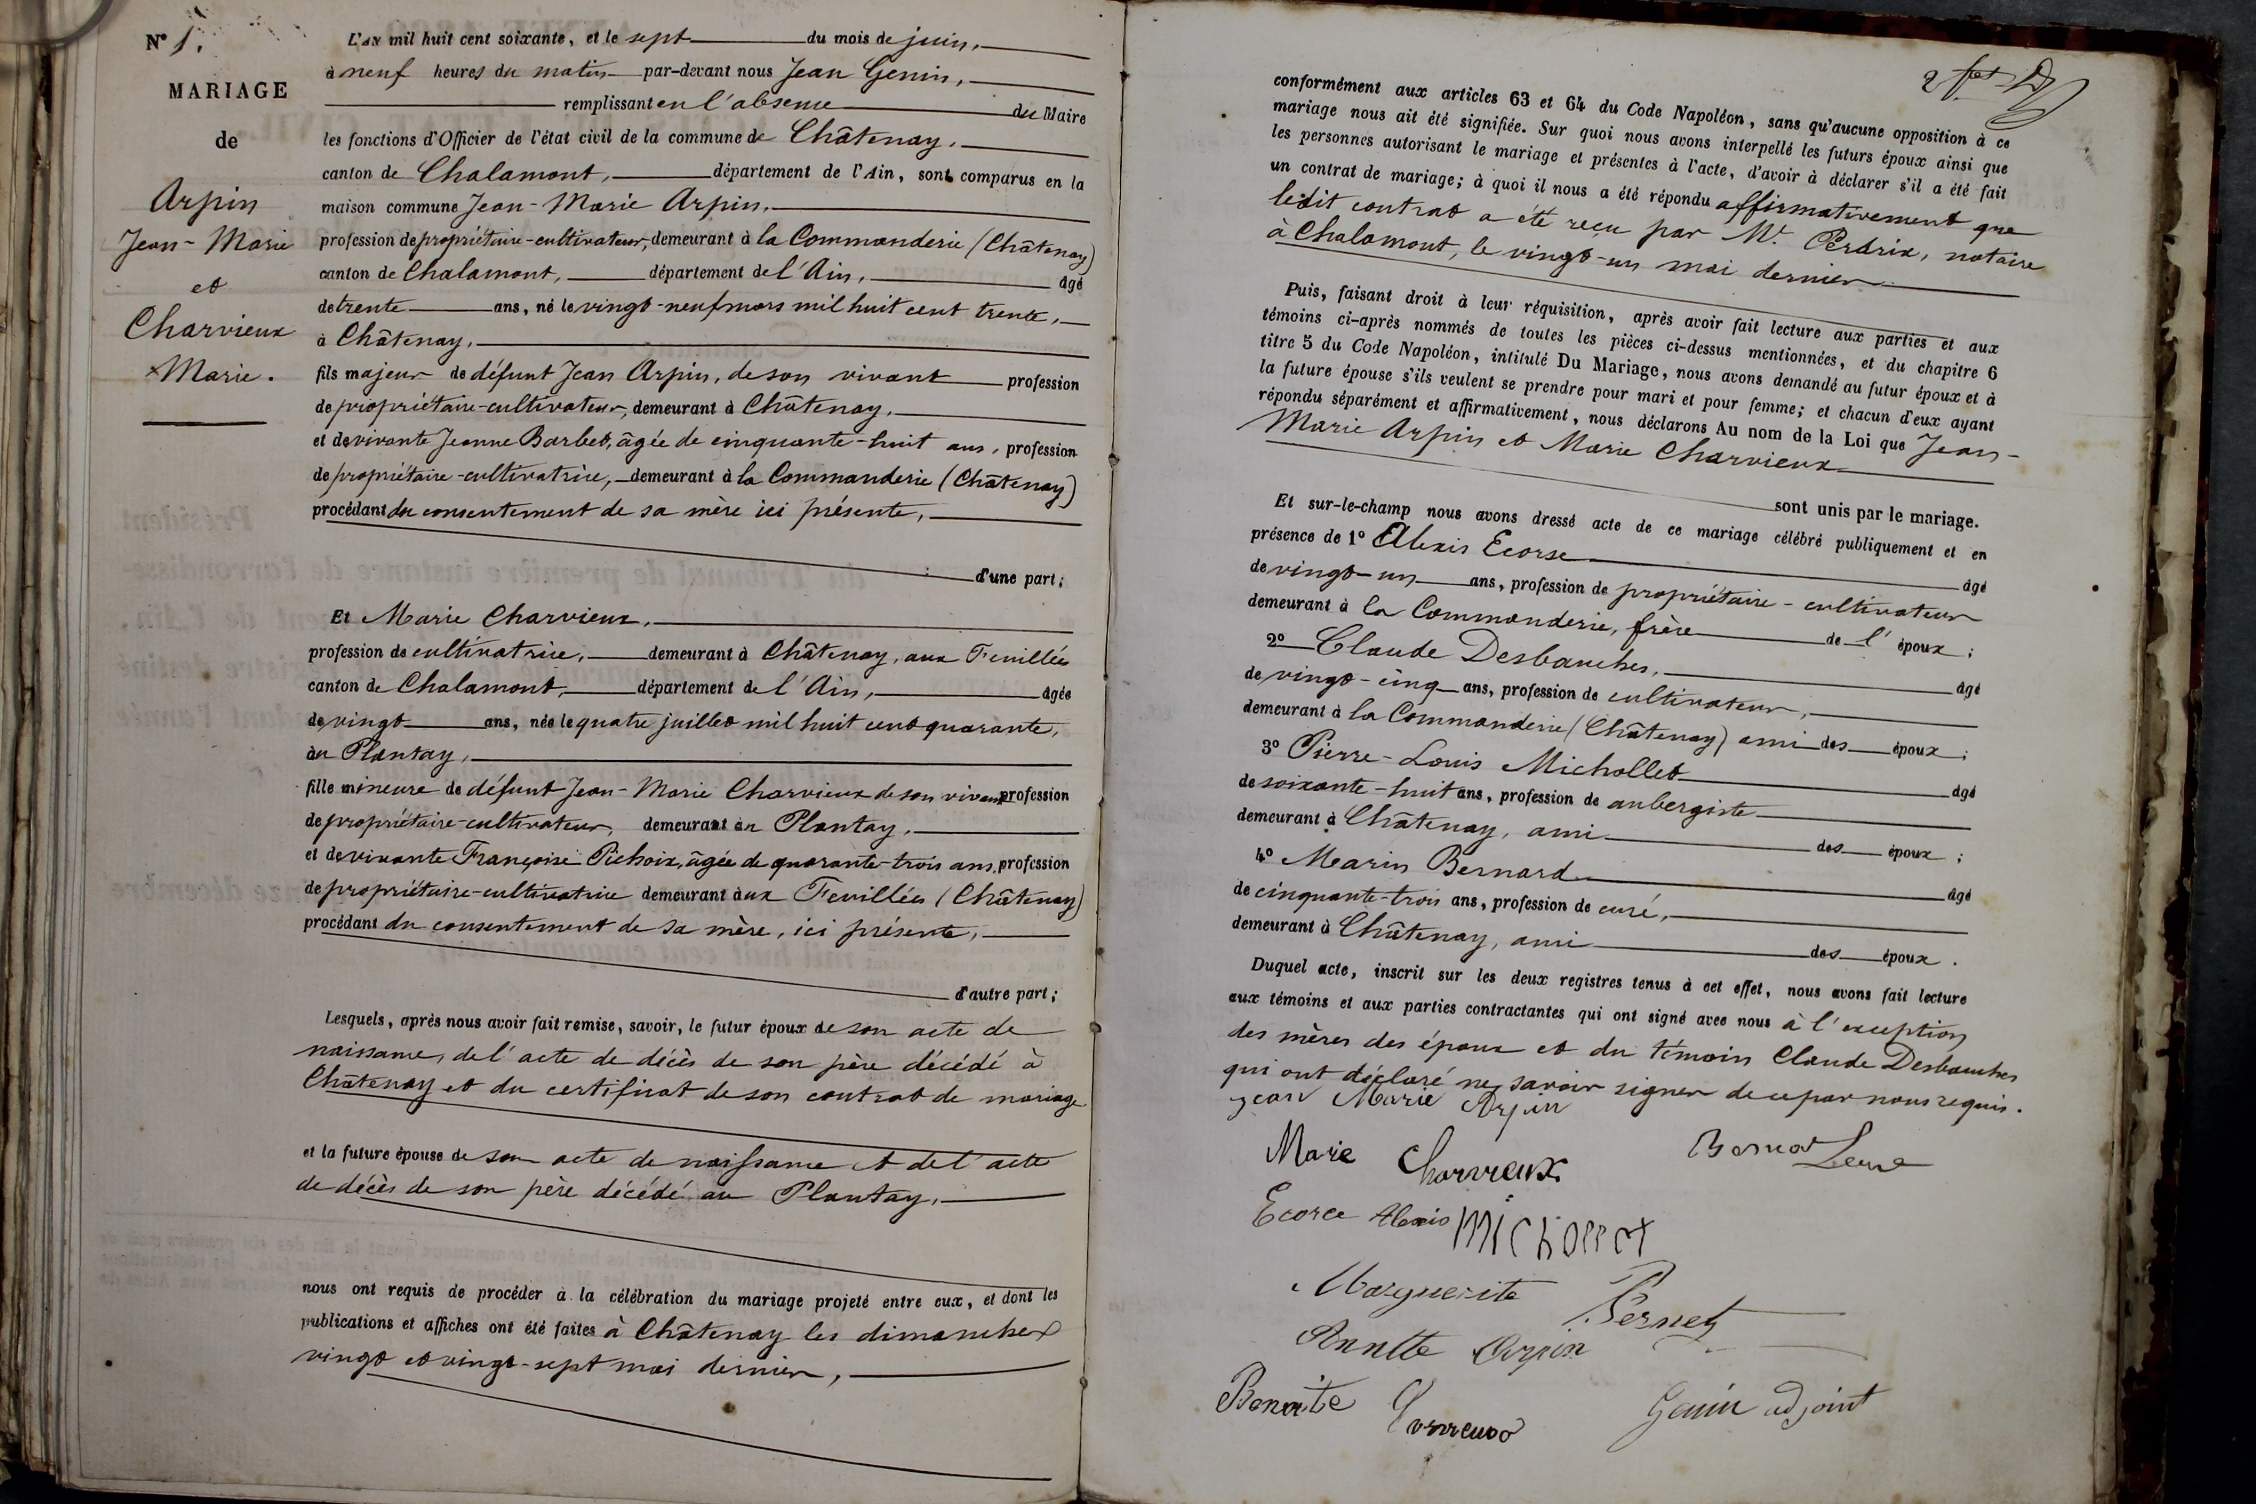 N° 1.
MARIAGE
de
Arpin
Jean-Marie
et
Charvieux
Marie.
L'an mil huit cent soixante, et le sept du mois de juin,
à neuf heures du matin par-devant nous Jean Genin,
remplissant en l'absence du Maire
les fonctions d'Officier de l'état civil de la commune de Châtenay,
canton de Chalamont, département de l'Ain, sont comparus en la
maison commune Jean-Marie Arpin,
profession de propriétaire-cultivateur, demeurant à la Commanderie (Châtenay)
canton de Chalamont, département de l'Ain, âgé
de trente ans, né le vingt-neuf mars mil huit cent trente,
à Châtenay,
fils majeur de défunt Jean Arpin, de son vivant profession
de propriétaire-cultivateur, demeurant à Châtenay,
et de vivante Jeanne Barbet, âgée de cinquante-huit ans, profession
de propriétaire-cultivatrice, demeurant à la Commanderie (Châtenay)
procédant du consentement de sa mère ici présente,
d'une part;
Et Marie Charvieux,
profession de cultivatrice, demeurant à Châtenay, aux Feuillées
canton de Chalamont, département de l'Ain, âgée
de vingt ans, née le quatre juillet mil huit cent quarante,
au Plantay,
fille mineure de défunt Jean-Marie Charvieux de son vivant profession
de propriétaire-cultivateur, demeurant au Plantay,
et de vivante Françoise Pichoix, âgée de quarante-trois ans, profession
de propriétaire-cultivatrice demeurant aux Feuillées (Châtenay)
procédant du consentement de sa mère, ici présente,
d'autre part;
Lesquels, après nous avoir fait remise, savoir, le futur époux de son acte de
naissance, de l'acte de décès de son père décédé à
Châtenay et du certificat de son contrat de mariage
et la future épouse de son acte de naissance et de l'acte
de décès de son père décédé au Plantay,
nous ont requis de procéder à la célébration du mariage projeté entre eux, et dont les
publications et affiches ont été faites à Châtenay les dimanches
vingt et vingt-sept mai dernier,
conformément aux articles 63 et 64 du Code Napoléon, sans qu'aucune opposition à ce
mariage nous ait été signifiée. Sur quoi nous avons interpellé les futurs époux ainsi que
les personnes autorisant le mariage et présentes à l'acte, d'avoir à déclarer s'il a été fait
un contrat de mariage; à quoi il nous a été répondu affirmativement que
ledit contrat a été reçu par Me. Perdrix, notaire
à Chalamont, le vingt-un mai dernier
Puis, faisant droit à leur réquisition, après avoir fait lecture aux parties et aux
témoins ci-après nommés de toutes les pièces ci-dessus mentionnées, et du chapitre 6
titre 5 du Code Napoléon, intitulé Du Mariage, nous avons demandé au futur époux et à
la future épouse s'ils veulent se prendre pour mari et pour femme; et chacun d'eux ayant
répondu séparément et affirmativement, nous déclarons Au nom de la Loi que Jean-
Marie Arpin et Marie Charvieux
sont unis par le mariage.
Et sur-le-champ nous avons dressé acte de ce mariage célébré publiquement et en
présence de 1° Alexis Ecorse âgé
de vingt-un ans, profession de propriétaire-cultivateur
demeurant à la Commanderie, frère de l' époux;
2° Claude Desbauches, âgé
de vingt-cinq ans, profession de cultivateur,
demeurant à la Commanderie (Châtenay) ami des époux;
3° Pierre-Louis Michollet âgé
de soixante-huit ans, profession de aubergiste
demeurant à Châtenay, ami des époux;
4° Marin Bernard âgé
de cinquante-trois ans, profession de curé,
demeurant à Châtenay, ami des époux.
Duquel acte, inscrit sur les deux registres tenus à cet effet, nous avons fait lecture
aux témoins et aux parties contractantes qui ont signé avec nous à l'exception
des mères des époux et du témoin Claude Desbauches
qui ont déclaré ne savoir signer de ce par nous requis.
Jean Marie Arpin
Marie Charvieux
Ecorce Alexis Michollet
Marguerite Pernet
Annette Arpin
Benoite
Genin adjoint